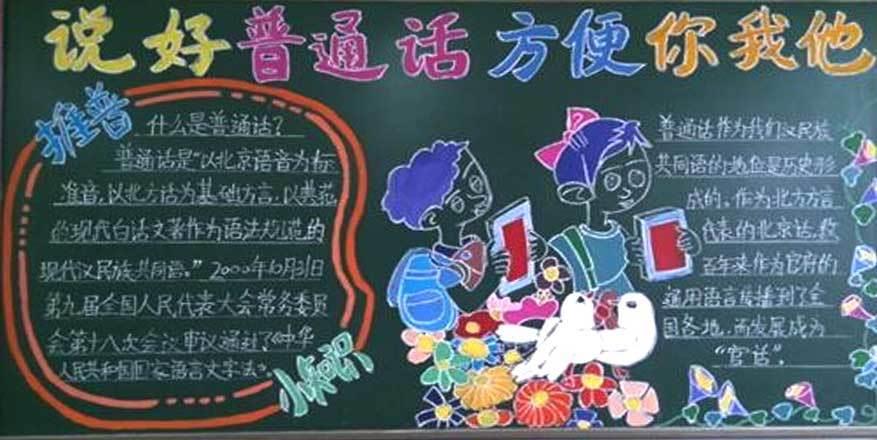 说好普通话 方便你我他
推普
什么是普通话?
普通话是“以北京语音为标
准音,以北方话为基础方言,以典范
的现代白话文著作为语法规范的
现代汉民族共同语。”2000年10月31日
第九届全国人民代表大会常务委员
会第十八次会议审议通过了《中华
人民共和国国家语言文字法》。
小知识
普通话作为我们汉民族
共同语的地位是历史形
成的。作为北方方言
代表的北京话,数
百年来作为官府的
通用语言传播到了全
国各地,而发展成为
“官话”。